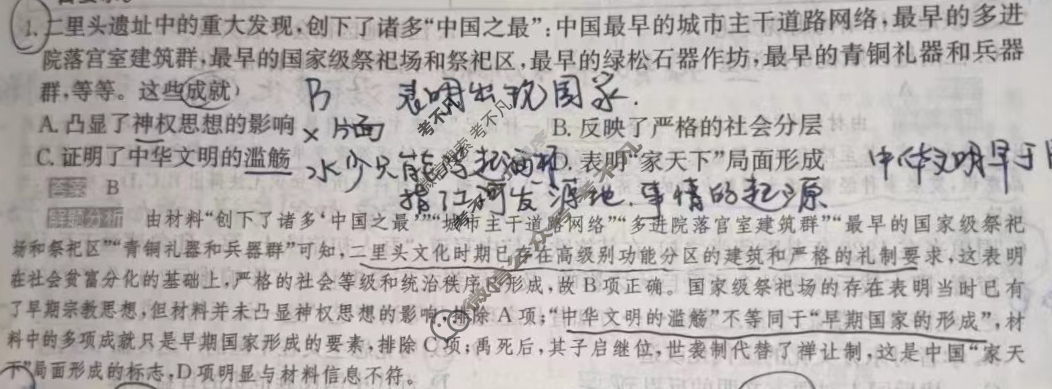 1. 二里头遗址中的重大发现,创下了诸多“中国之最”:中国最早的城市主干道路网络,最早的多进
院落宫室建筑群,最早的国家级祭祀场和祭祀区,最早的绿松石器作坊,最早的青铜礼器和兵器
群,等等。这些成就) B 表明出现国家.
A. 凸显了神权思想的影响 × 片面 B. 反映了严格的社会分层
C. 证明了中华文明的滥觞 水少只能 起酒杯 D. 表明“家天下”局面形成 中华文明早于
答案 B 指江河发源地.事情的起源
解题分析 由材料“创下了诸多‘中国之最’”“城市主干道路网络”“多进院落宫室建筑群”“最早的国家级祭祀
场和祭祀区”“青铜礼器和兵器群”可知,二里头文化时期已存在高级别功能分区的建筑和严格的礼制要求,这表明
在社会贫富分化的基础上,严格的社会等级和统治秩序 形成,故B项正确。国家级祭祀场的存在表明当时已有
了早期宗教思想,但材料并未凸显神权思想的影响,排除A项;“中华文明的滥觞”不等同于“早期国家的形成”,材
料中的多项成就只是早期国家形成的要素,排除C项;禹死后,其子启继位,世袭制代替了禅让制,这是中国“家天
下”局面形成的标志,D项明显与材料信息不符。